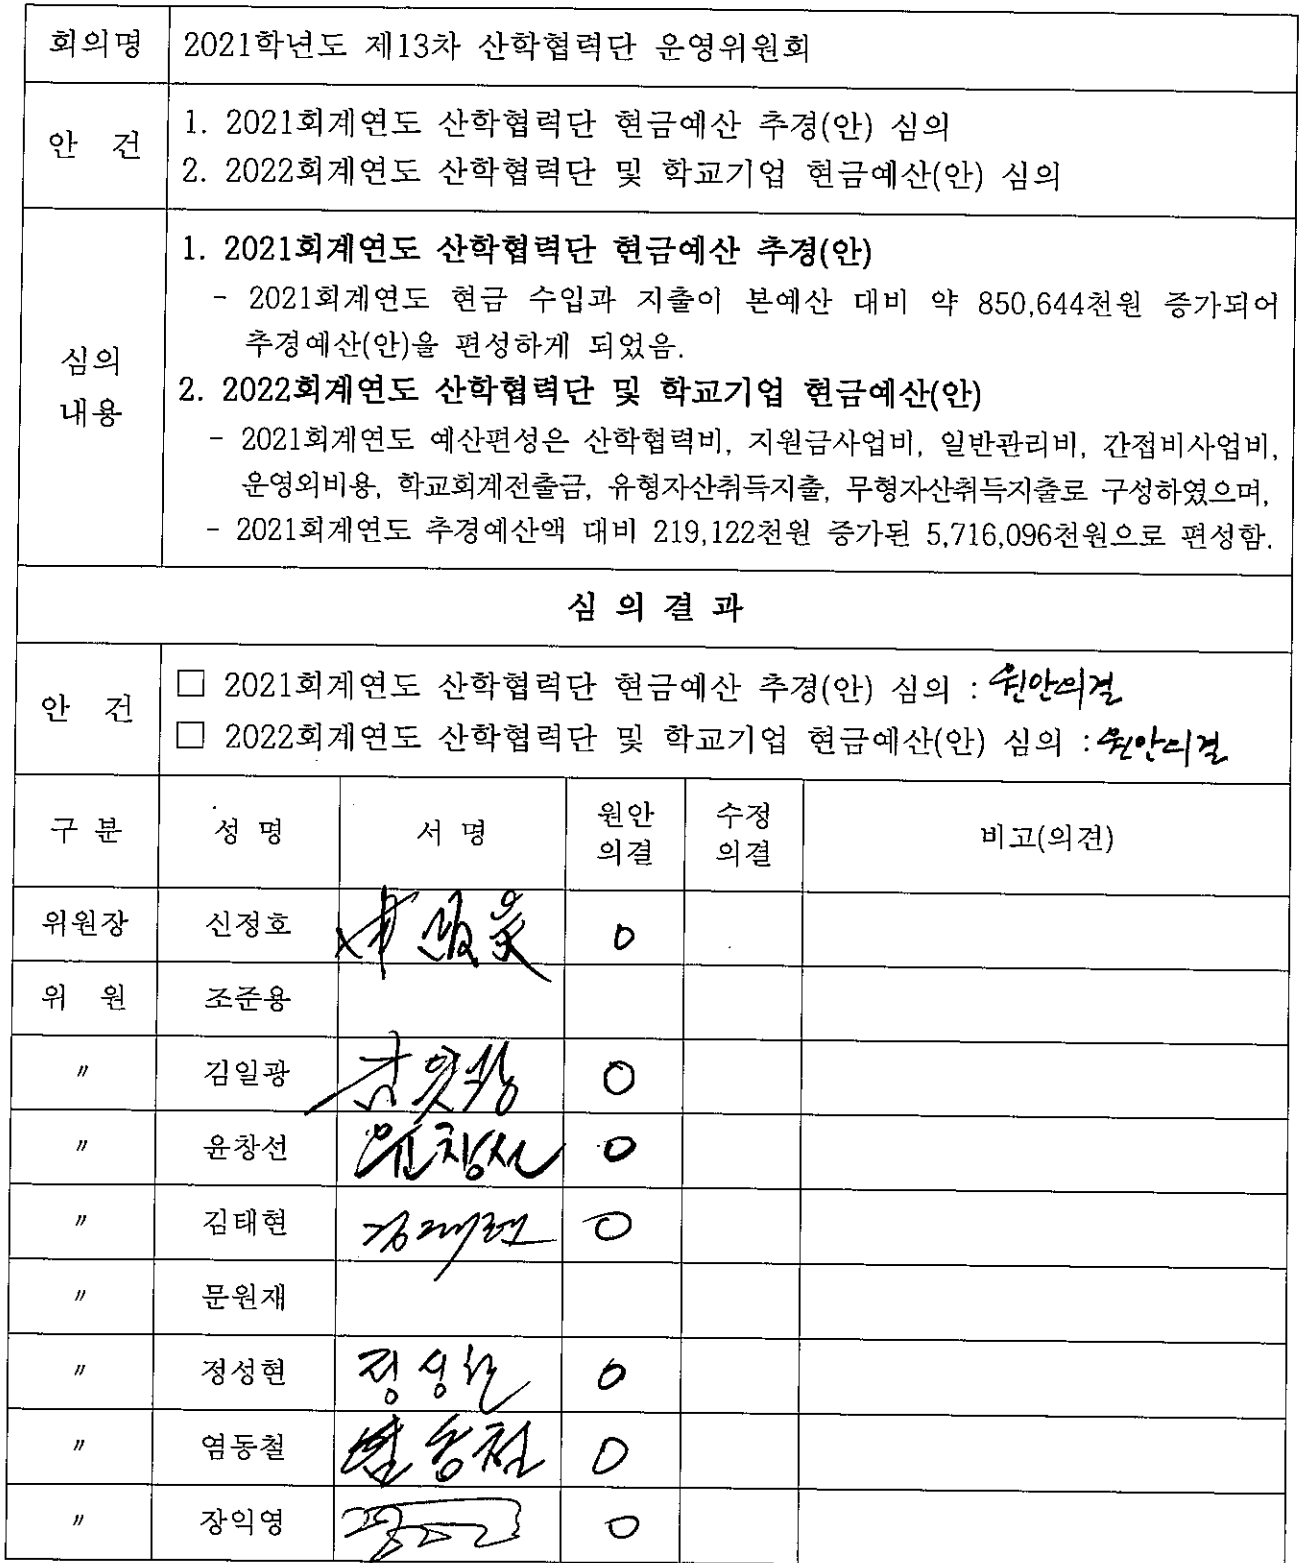 회의명 2021학년도 제13차 산학협력단 운영위원회
안 건
1. 2021회계연도 산학협력단 현금예산 추경(안) 심의
2. 2022회계연도 산학협력단 및 학교기업 현금예산(안) 심의
심의
내용
1. 2021회계연도 산학협력단 현금예산 추경(안)
- 2021회계연도 현금 수입과 지출이 본예산 대비 약 850,644천원 증가되어
추경예산(안)을 편성하게 되었음.
2. 2022회계연도 산학협력단 및 학교기업 현금예산(안)
- 2021회계연도 예산편성은 산학협력비, 지원금사업비, 일반관리비, 간접비사업비,
운영외비용, 학교회계전출금, 유형자산취득지출, 무형자산취득지출로 구성하였으며,
- 2021회계연도 추경예산액 대비 219,122천원 증가된 5,716,096천원으로 편성함.
심 의 결 과
안 건
□ 2021회계연도 산학협력단 현금예산 추경(안) 심의 : 원안의결
□ 2022회계연도 산학협력단 및 학교기업 현금예산(안) 심의 : 원안의결
구 분 성 명 서 명 원안의결 수정의결 비고(의견)
위원장 신정호 O
위 원 조준용
〃 김일광 O
〃 윤창선 윤창선 O
〃 김태현 김태현 O
〃 문원재
〃 정성현 정성현 O
〃 염동철 염동철 O
〃 장익영 O